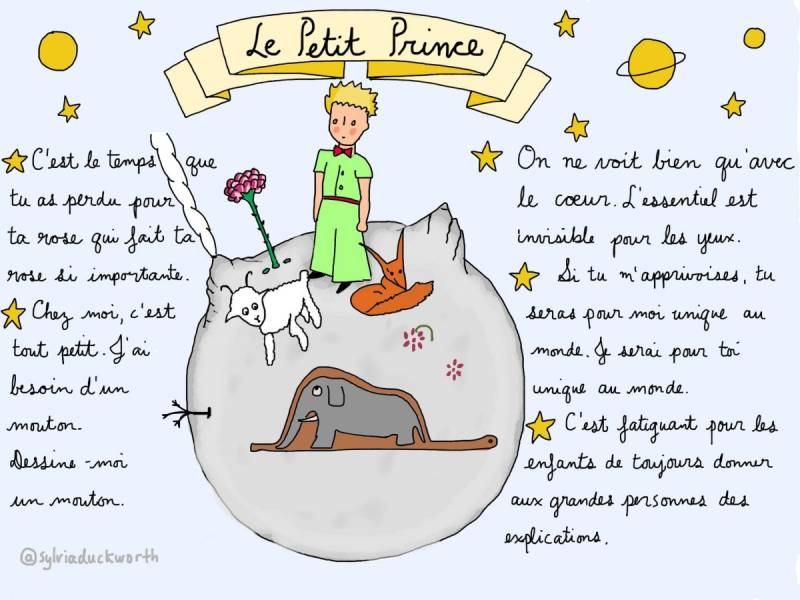 Le Petit Prince
C'est le temps que
tu as perdu pour
ta rose qui fait ta
rose si importante.
Chez moi, c'est
tout petit. J'ai
besoin d'un
mouton.
Dessine-moi
un mouton.
On ne voit bien qu'avec
le coeur. L'essentiel est
invisible pour les yeux.
Si tu m'apprivoises, tu
seras pour moi unique au
monde. Je serai pour toi
unique au monde.
C'est fatiguant pour les
enfants de toujours donner
aux grandes personnes des
explications.
@sylviaduckworth